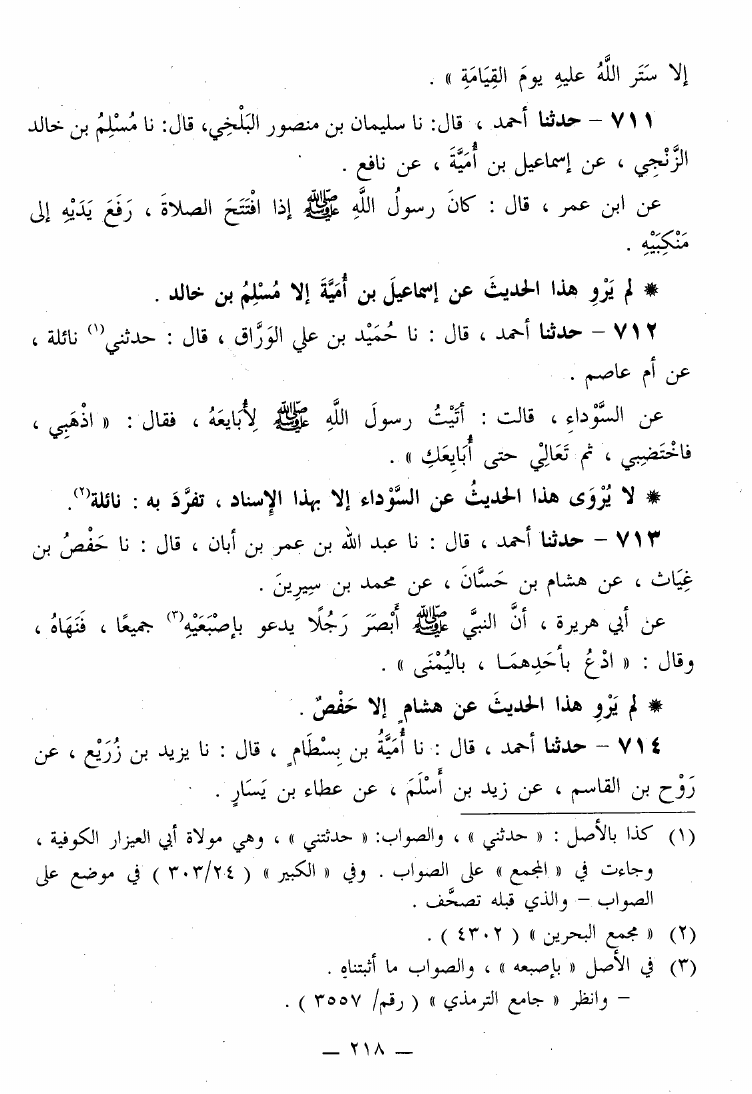 إلا سَتَر اللَّهُ عليهِ يومَ القِيَامَةِ » .
٧١١ – حدثنا أحمد ، قال: نا سليمان بن منصور البَلْخِي، قال: نا مُسْلِمُ بن خالد
الزَّنْجِي ، عن إسماعيل بن أُمَيَّةَ ، عن نافع .
عن ابن عمر ، قال : كانَ رسولُ اللَّهِ ﷺ إذا افْتَتَحَ الصلاةَ ، رَفَعَ يَدَيْهِ إلى
مَنْكِبَيْهِ .
* لم يَرْوِ هذا الحديثَ عن إسماعيلَ بن أُمَيَّةَ إلا مُسْلِمُ بن خالد .
٧١٢ – حدثنا أحمد ، قال : نا حُمَيْد بن علي الوَرَّاق ، قال : حدثني(١) نائلة ،
عن أم عاصم .
عن السَّوْداءِ ، قالت : أَتَيْتُ رسولَ اللَّهِ ﷺ لِأُبَايعَهُ ، فقال : « اذْهَبِي ،
فاخْتَضِبي ، ثم تَعَالِيْ حتى أُبَايِعَكِ » .
* لا يُرْوَى هذا الحديثُ عن السَّوْداء إلا بهذا الإسناد ، تفرَّدَ به : نائلة(٢).
٧١٣ – حدثنا أحمد ، قال : نا عبد الله بن عمر بن أبان ، قال : نا حَفْصُ بن
غِيَاث ، عن هشام بن حَسَّانَ ، عن محمد بن سِيرِينَ .
عن أبي هريرة ، أنَّ النبيَّ ﷺ أَبْصَرَ رَجُلًا يدعو بإصْبَعَيْهِ(٣) جميعًا ، فَنَهَاهُ ،
وقال : « ادْعُ بأحَدِهِمَا ، باليُمْنَى » .
* لم يَرْوِ هذا الحديثَ عن هشامٍ إلا حَفْصٌ .
٧١٤ – حدثنا أحمد ، قال : نا أُمَيَّةُ بن بِسْطَامٍ ، قال : نا يزيد بن زُرَيْع ، عن
رَوْح بن القاسم ، عن زيد بن أَسْلَمَ ، عن عطاء بن يَسَارٍ .
(١) كذا بالأصل : « حدثني » ، والصواب: « حدثتني » ، وهي مولاة أبي العيزار الكوفية ،
وجاءت في « المجمع » على الصواب . وفي « الكبير » ( ٣٠٣/٢٤ ) في موضع على
الصواب – والذي قبله تصحَّف .
(٢) « مجمع البحرين » ( ٤٣٠٢ ) .
(٣) في الأصل « بإصبعه » ، والصواب ما أثبتناه .
– وانظر « جامع الترمذي » ( رقم/ ٣٥٥٧ ) .
— ٢١٨ —